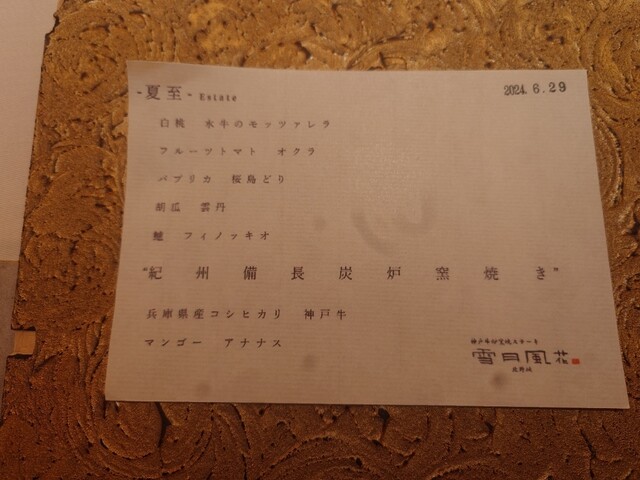 -夏至- Estate
2024. 6. 29
白桃 水牛のモッツァレラ
フルーツトマト オクラ
パプリカ 桜島どり
胡瓜 雲丹
鱧 フィノッキオ
"紀州備長炭炉窯焼き"
兵庫県産コシヒカリ 神戸牛
マンゴー アナナス
神戸牛炉窯焼ステーキ
雪月風花
北野坂